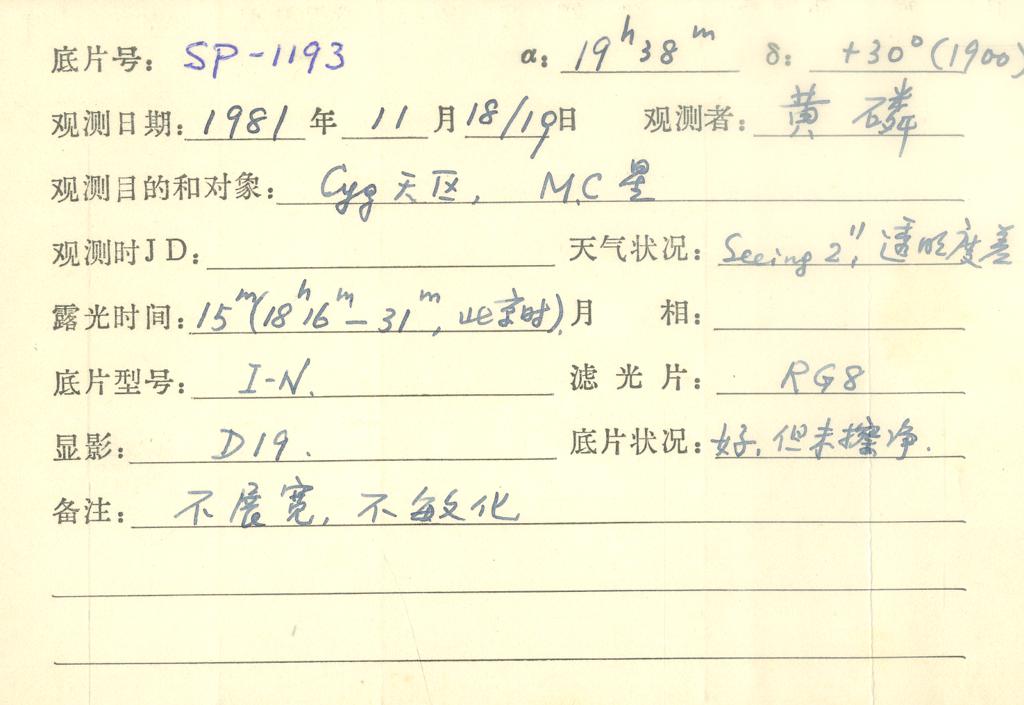 底片号： SP-1193 α： 19h38m δ： +30°(1900)
观测日期：1981年 11月18/19日 观测者： 黄磷
观测目的和对象： Cyg天区， M.C星
观测时JD： 天气状况： Seeing 2"，透明度差
露光时间：15m(18h16m-31m，北京时) 月 相：
底片型号： I-N. 滤光片： RG8
显影： D19. 底片状况：好，但未擦净.
备注： 不展宽，不敏化